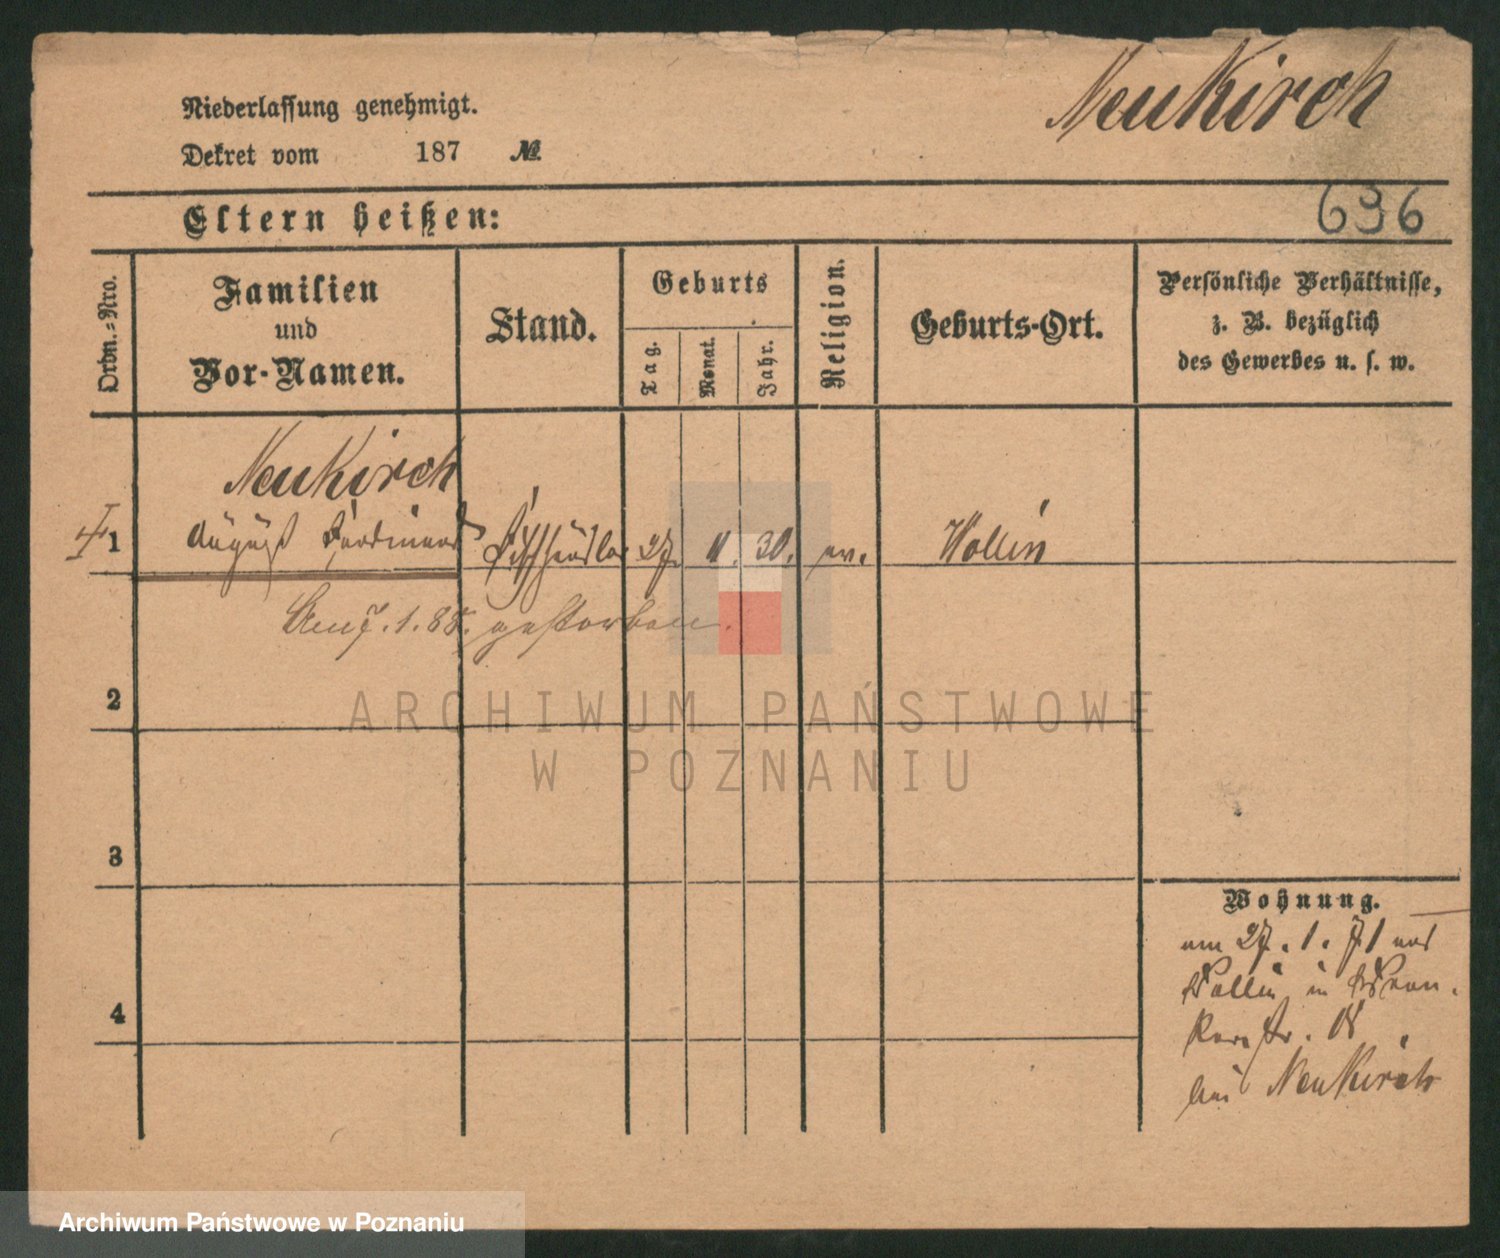 Neukirch
Niederlassung genehmigt.
Dekret vom 187 №
696
Eltern heißen:
Ordn.-Nro.
Familien
und
Vor-Namen.
Stand.
Geburts
Tag.
Monat.
Jahr.
Religion.
Geburts-Ort.
Persönliche Verhältnisse,
z. B. bezüglich
des Gewerbes u. s. w.
Neukirch
1 August Ferdinand Fischhändler 27. 11. 30. ev. Wollin
Am 7. 1. 88. gestorben.
2
ARCHIWUM PAŃSTWOWE
W POZNANIU
3
Wohnung.
am 27. 1. 71 aus
Wollin in
4
18
bei Neukirch
Archiwum Państwowe w Poznaniu